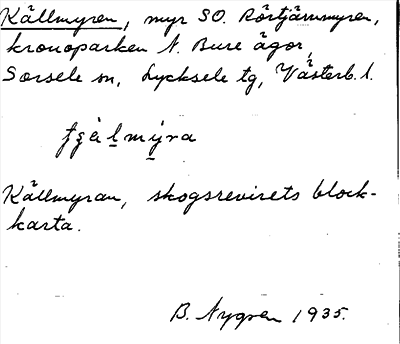 Källmyren, myr SO. Rörtjärnmyren,
kronoparken N. Bure ägor,
Sorsele sn, Lycksele tg, Västerb. l.
Källmyran, skogsrevirets block-
karta.
B. Nygren 1935.